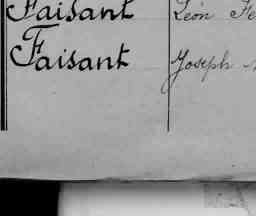 Faisant Léon Fe
Faisant Joseph